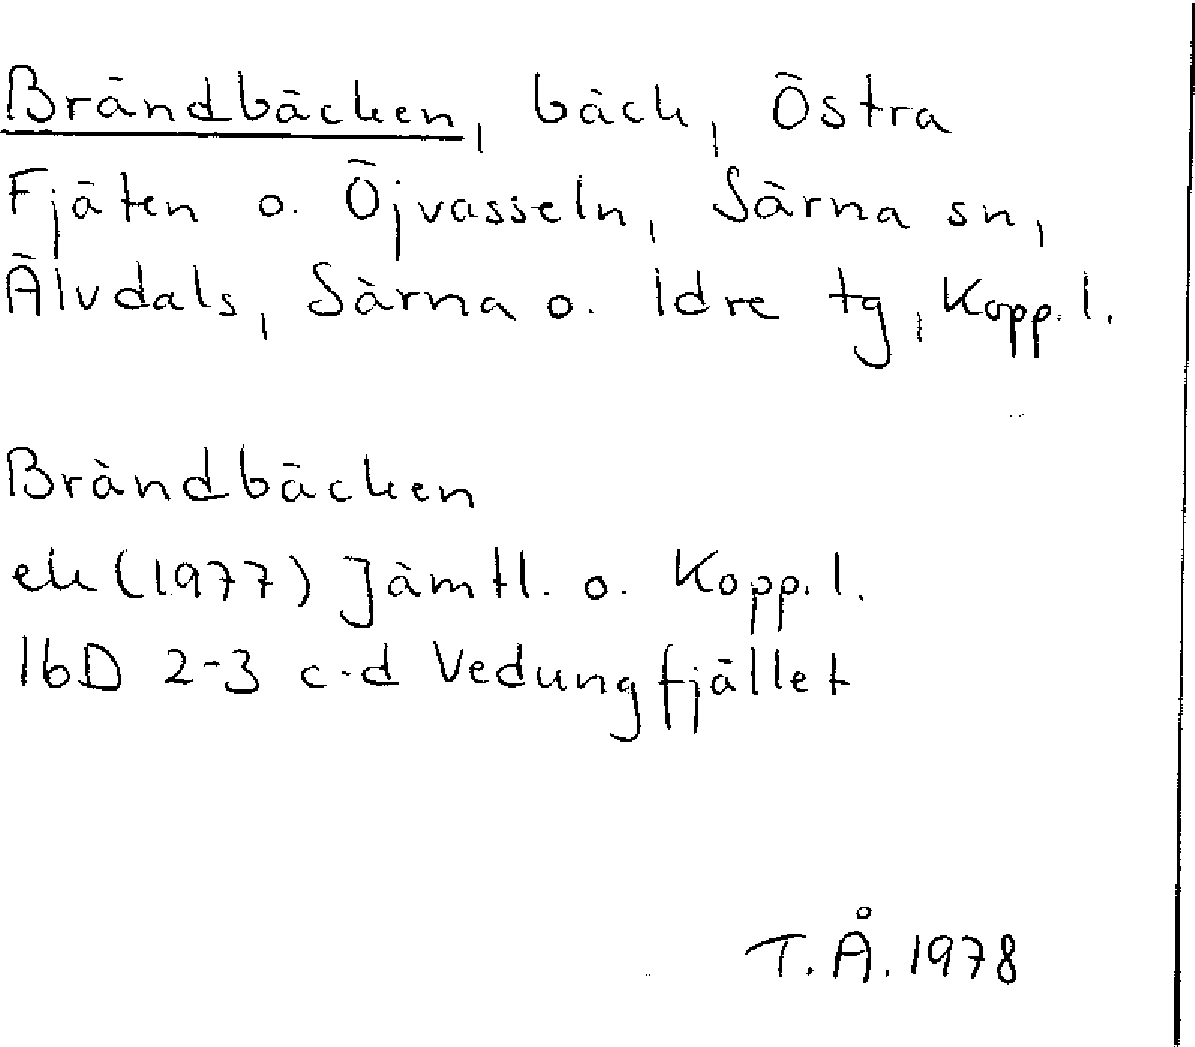 Brändbäcken, bäck, Östra
Fjäten o. Öjvasseln, Särna sn,
Älvdals, Särna o. Idre tg, Kopp. l.
Brändbäcken
ek (1977) Jämtl. o. Kopp. l.
16D 2-3 c-d Vedungfjället
T. Å. 1978